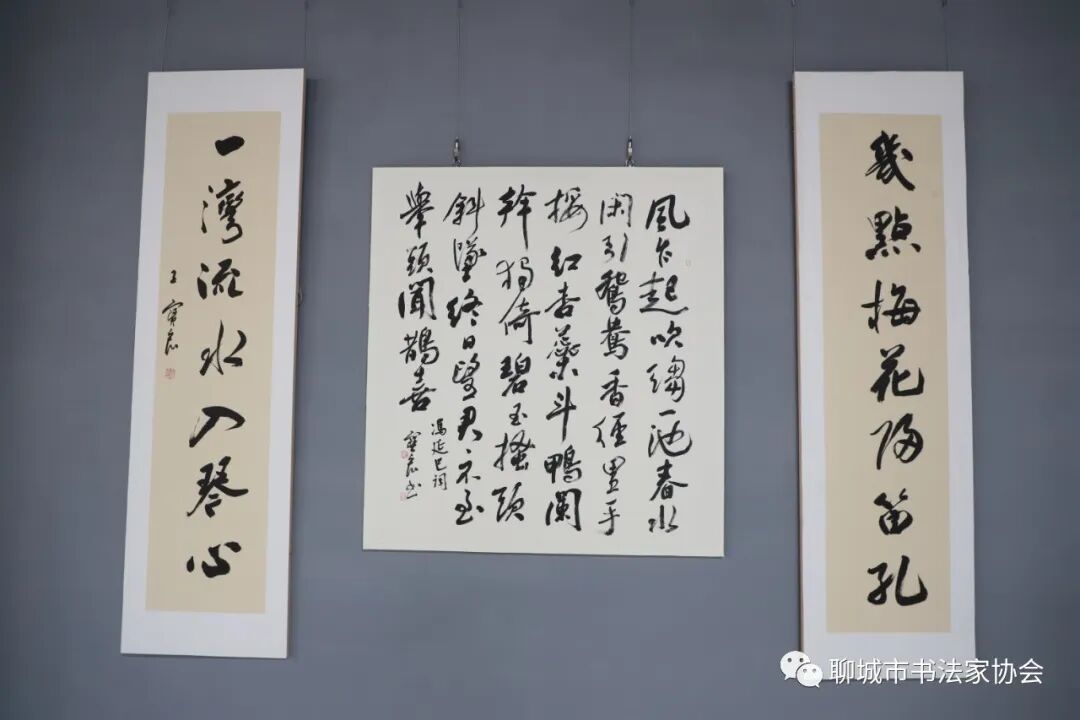 幾點梅花歸笛孔
風乍起吹縐一池春水
閑引鴛鴦香徑里手
挼紅杏蕊斗鴨闌
幹獨倚碧玉搔頭
斜墜終日望君不至
舉頭聞鵲喜
馮延巳詞
一灣流水入琴心
聊城市书法家协会